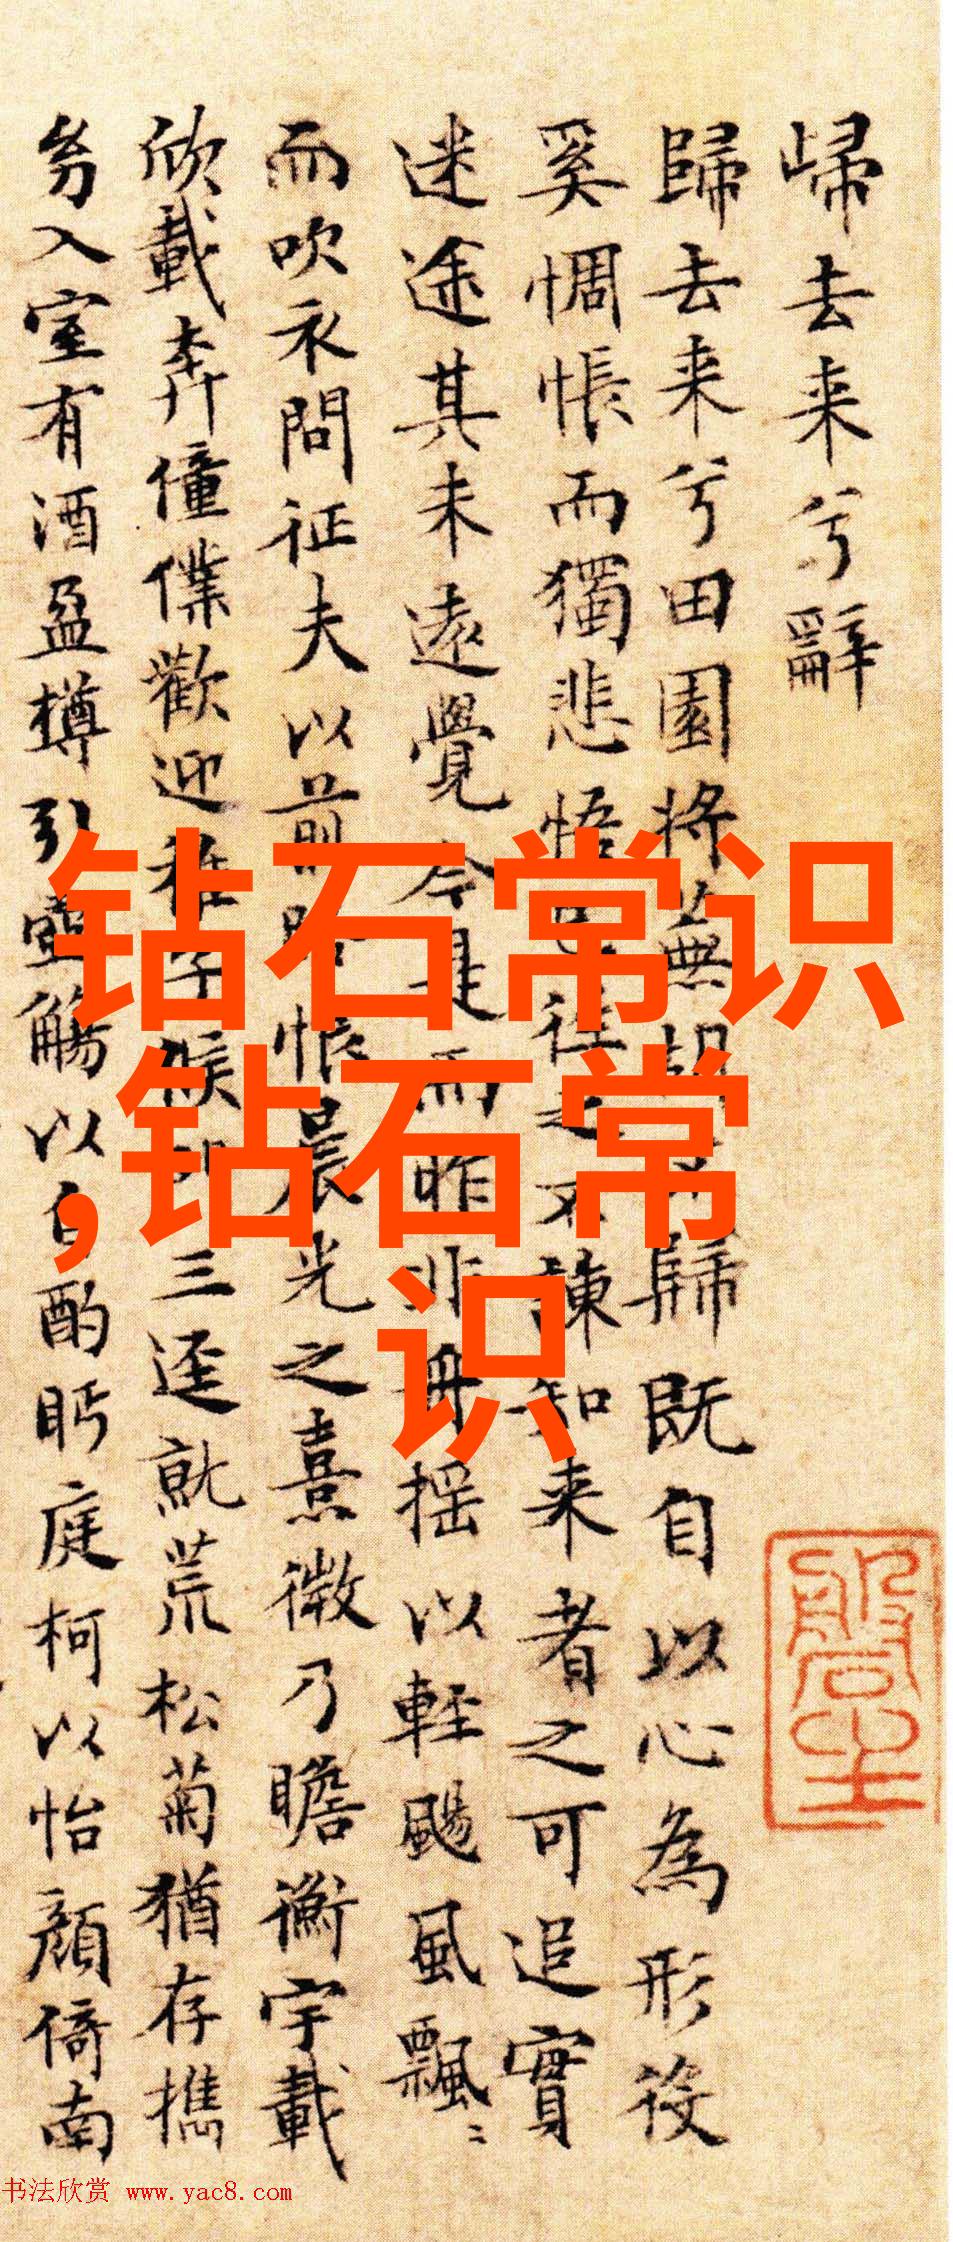 歸去来兮辭
歸去来兮田園將蕪胡歸既自以心為形役
奚惆悵而獨悲悟往之不諫知来者之可追實
迷途其未遠覺今是而昨非舟揺以軽颺風飄〻
而吹衣問征夫以前路悵晨光之熹微乃瞻衡宇載
欣載奔僮僕歡迎稚子候三逕就荒松菊猶存携
幼入室有酒盈樽引壺觴以自酌眄庭柯以怡顔倚南
钻石常识
,钻石常
识
书法欣赏 www.yac8.com